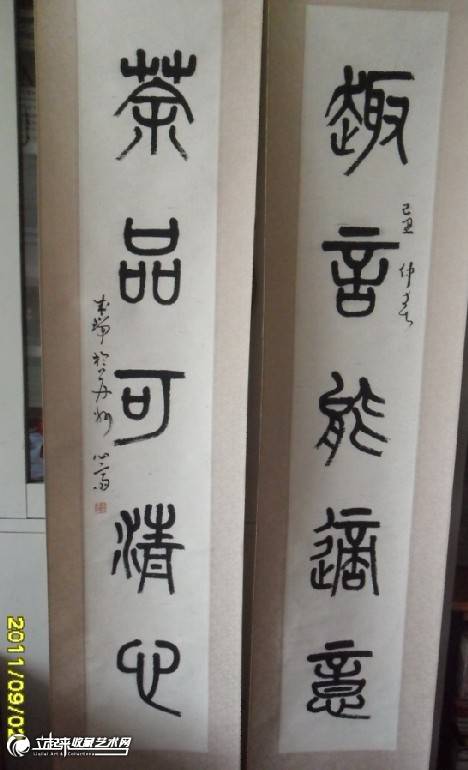 趣言能適意
己丑 仲春
茶品可清心
2011/09/02
立起来收藏艺术网